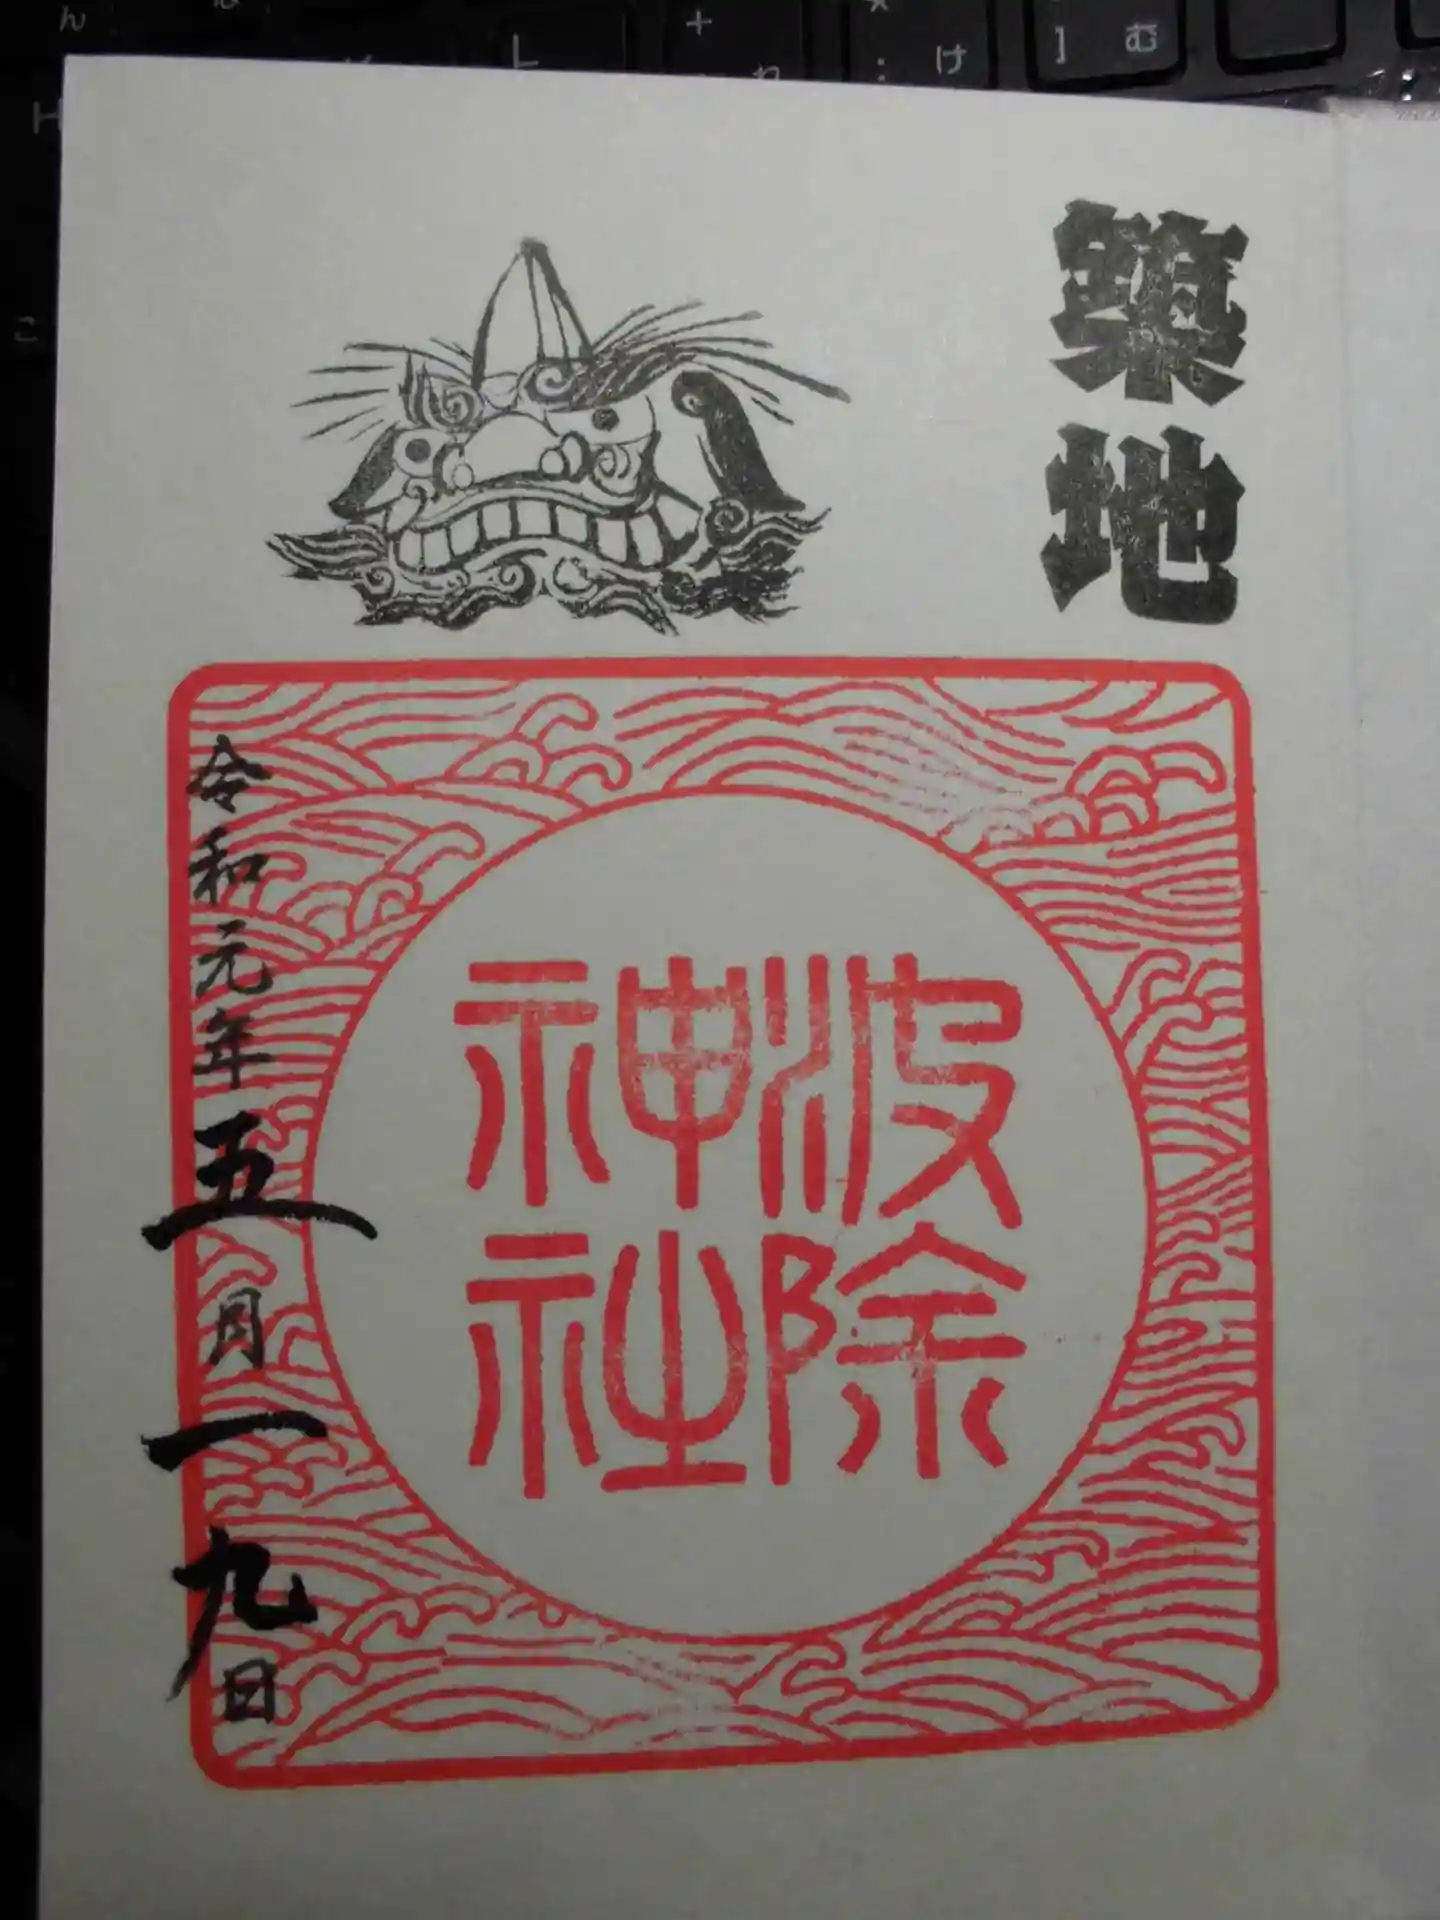 ん
H
こ
+
け
] む
築地
波除
神社
令和元年五月一九日